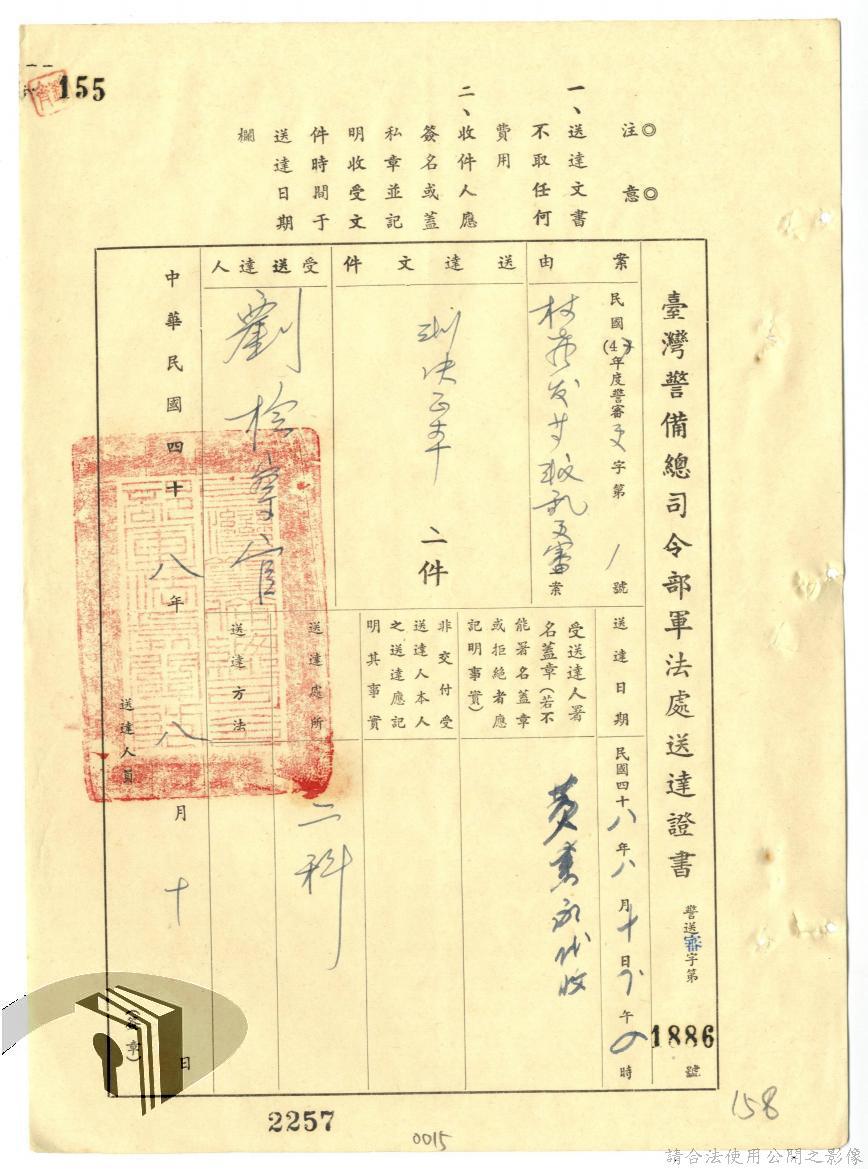 155
注意
一、送達文書
不取任何
費用
二、收件人應
簽名或蓋
私章並記
明收受文
件時間于
送達日期
欄
臺灣警備總司令部軍法處送達證書
警送審字第
1886
號
案由
民國(4)年度警審更字第1號
叛亂更審案
送達文件
判決正本 二件
受送達人
劉檢察官
送達日期
民國四十八年八月十日下午 時
受送達人署
名蓋章(若不
能署名蓋章
或拒絕者應
記明事實)
代收
非交付受
送達人本人
之送達應記
明其事實
送達處所
二科
送達方法
中華民國四十八年八月十日
送達人員
(簽章)
2257
0015
158
請合法使用公開之影像